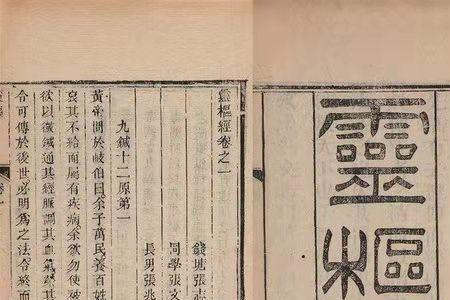 靈樞
靈樞經卷之一
錢塘張志
同學張文
長男張兆
九鍼十二原第一
黃帝問於岐伯曰余子萬民養百姓
哀其不給而屬有疾病余欲勿使被
欲以微鍼通其經脈調其血氣營其
令可傳於後世必明爲之法令終而
卷一